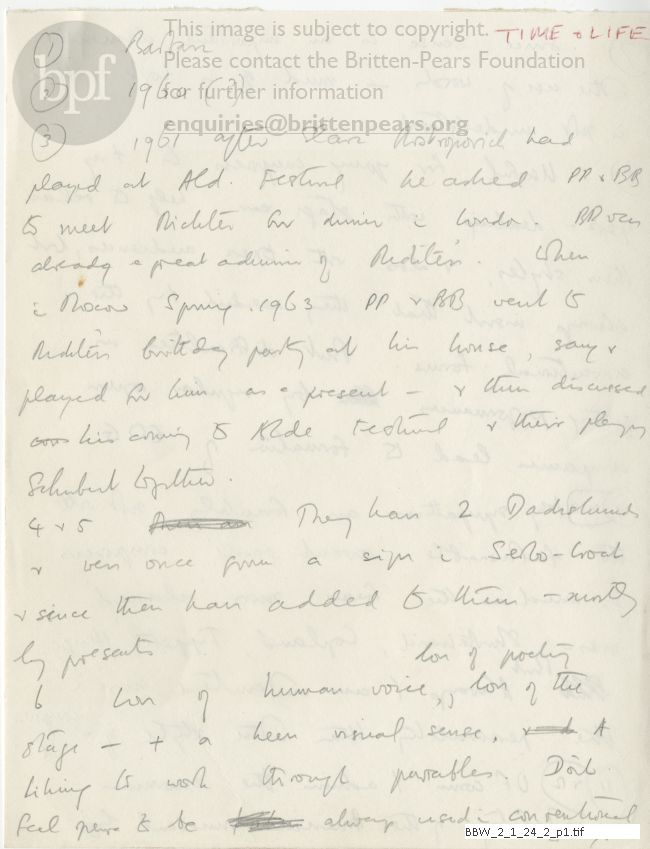 This image is subject to copyright.
Please contact the Britten-Pears Foundation
for further information
enquiries@brittenpears.org
bpf
TIME + LIFE
(1)
(2) 1960 (?)
(3) 1961 after Slava Rostropovich had
played at Ald. Festival he asked PP & BB
to meet Richter for dinner in London. BB was
already a great admirer of Richter's. When
in Moscow Spring 1963 PP & BB went to
Richter's birthday party at his house, sang &
played for him as a present – & then discussed
his coming to Alde Festival & their playing
Schubert together.
4 & 5 They have 2 Dachshunds
& were once given a sign in Serbo-Croat
& since then have added to them – mostly
by presents
love of poetry
6 Love of human voice, love of the
stage – + a keen visual sense. A
liking to work through parables. Don't
feel opera to be always used in conventional
BBW_2_1_24_2_p1.tif